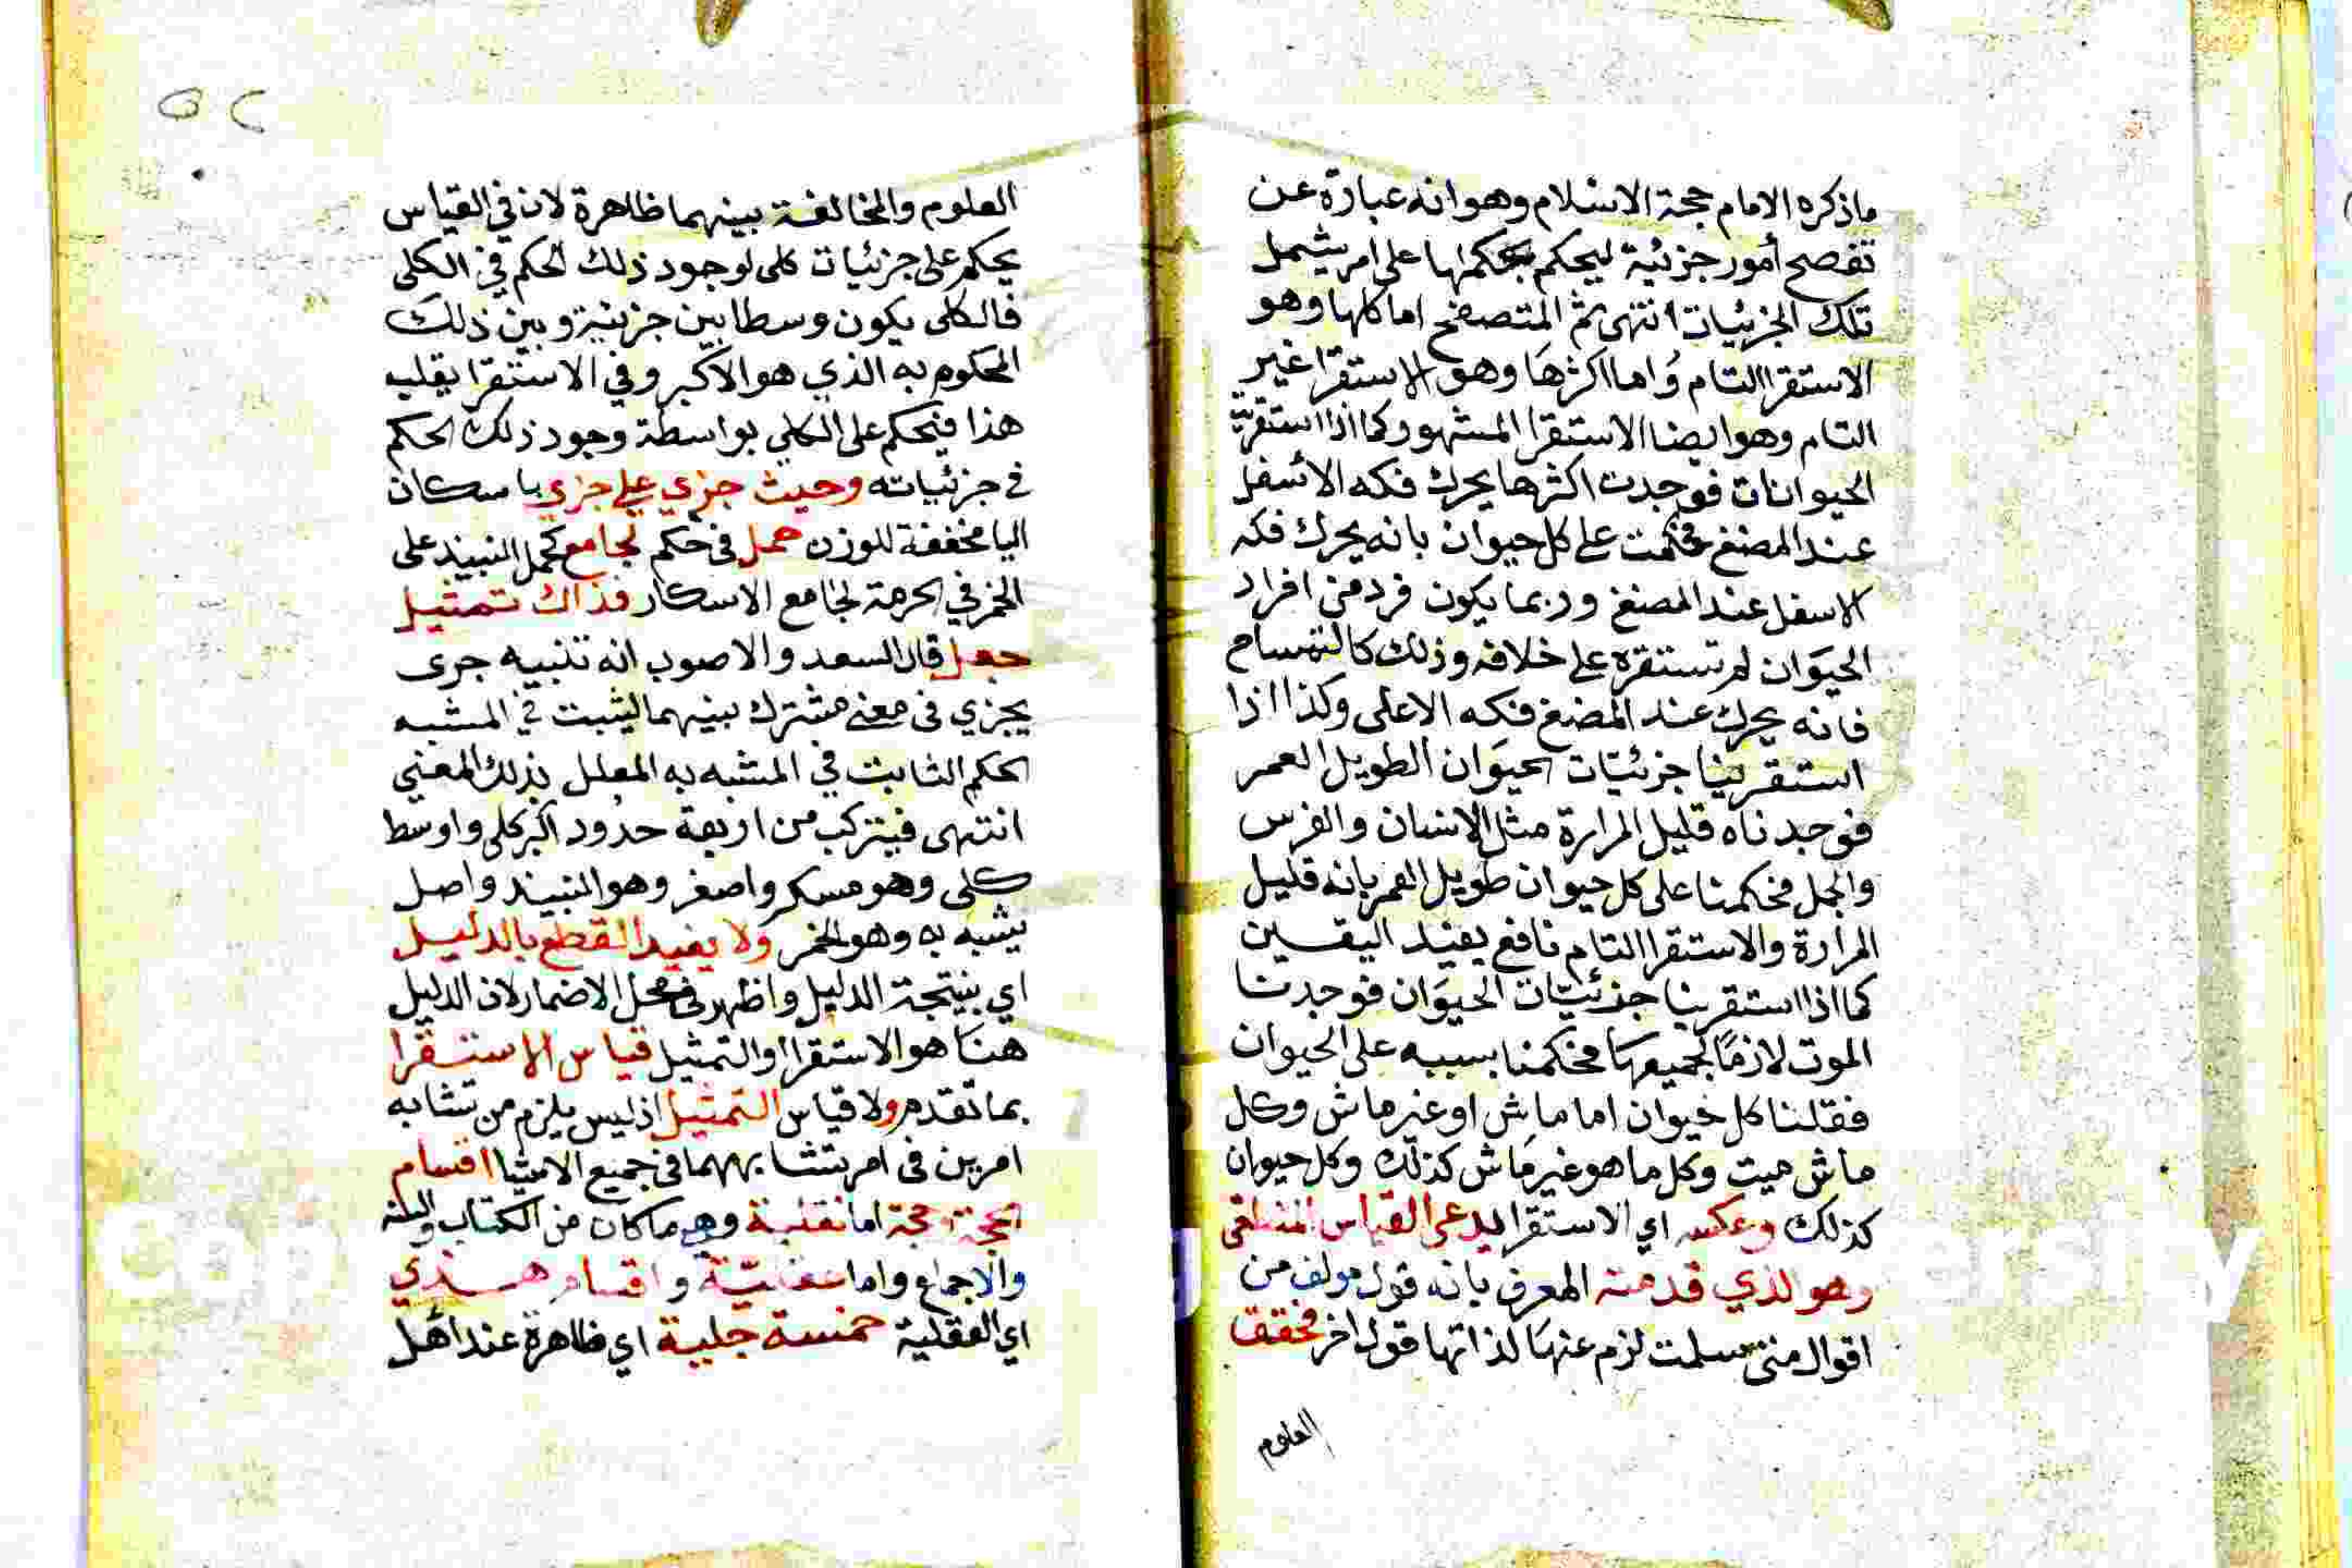 ماذكره الامام حجة الاسلام وهو انه عبارة عن
تفصح أمور جزئية ليحكم بحكمها على امر يشمل
تلك الجزئيات انتهى ثم المتصفح اما كلها وهو
الاستقرا التام واما اكثرها وهو الاستقرا غير
التام وهو ايضا الاستقرا المشهور كما اذا استقريت
الحيوانات فوجدت اكثرها يحرك فكه الاسفل
عند المضغ فحكمت على كل حيوان بانه يحرك فكه
الاسفل عند المضغ وربما يكون فرد من افراد
الحيوان لم تستقره على خلافه وذلك كالتمساح
فانه يحرك عند المضغ فكه الاعلى وكذا اذا
استقرينا جزئيات الحيوان الطويل العمر
فوجدناه قليل المرارة مثل الانسان والفرس
والجمل فحكمنا على كل حيوان طويل العمر بانه قليل
المرارة والاستقرا التام نافع يفيد اليقين
كما اذا استقرينا جزئيات الحيوان فوجدنا
الموت لازما لجميعها فحكمنا بسببه على الحيوان
فقلنا كل حيوان اما ماش او غير ماش وكل
ماش ميت وكل ما هو غير ماش كذلك وكل حيوان
كذلك وعكسه اي الاستقرا يدعى القياس المنطقى
وهو الذي قدمته المعرف بانه قول مولف من
اقوال متى سلمت لزم عنها لذاتها قول اخر فحقق
العلوم
٥٢
العلوم والمخالفة بينهما ظاهرة لان في القياس
يحكم على جزئيات كلى لوجود ذلك الحكم في الكلى
فالكلى يكون وسطا بين جزئية وبين ذلك
المحكوم به الذي هو الاكبر وفي الاستقرا يقلب
هذا فيحكم على الكلى بواسطة وجود ذلك الحكم
في جزئياته وحيث جزي على جزي باسكان
اليا مخففة للوزن حمل في حكم لجامع كحمل النبيذ على
الخمر في الحرمة لجامع الاسكار فذاك تمثيل
جعل قال السعد والاصوب انه تشبيه جزى
بجزي في معنى مشترك بينهما ليثبت في المشبه
الحكم الثابت في المشبه به المعلل بذلك المعنى
انتهى فيتركب من اربعة حدود اكبر كلى واوسط
كلى وهو مسكر واصغر وهو النبيذ واصل
يشبه به وهو الخمر ولا يفيد القطع بالدليل
اي بنتيجة الدليل واظهر في محل الاضمار لان الدليل
هنا هو الاستقرا او التمثيل قياس الاستقرا
بما تقدم ولا قياس التمثيل اذ ليس يلزم من تشابه
امرين في امر تشابههما في جميع الاشيا اقسام
الحجة حجة اما نقلية وهى ما كان من الكتاب والسنة
والاجماع واما عقلية واقسام هذي
اي العقلية خمسة جلية اي ظاهرة عند اهل